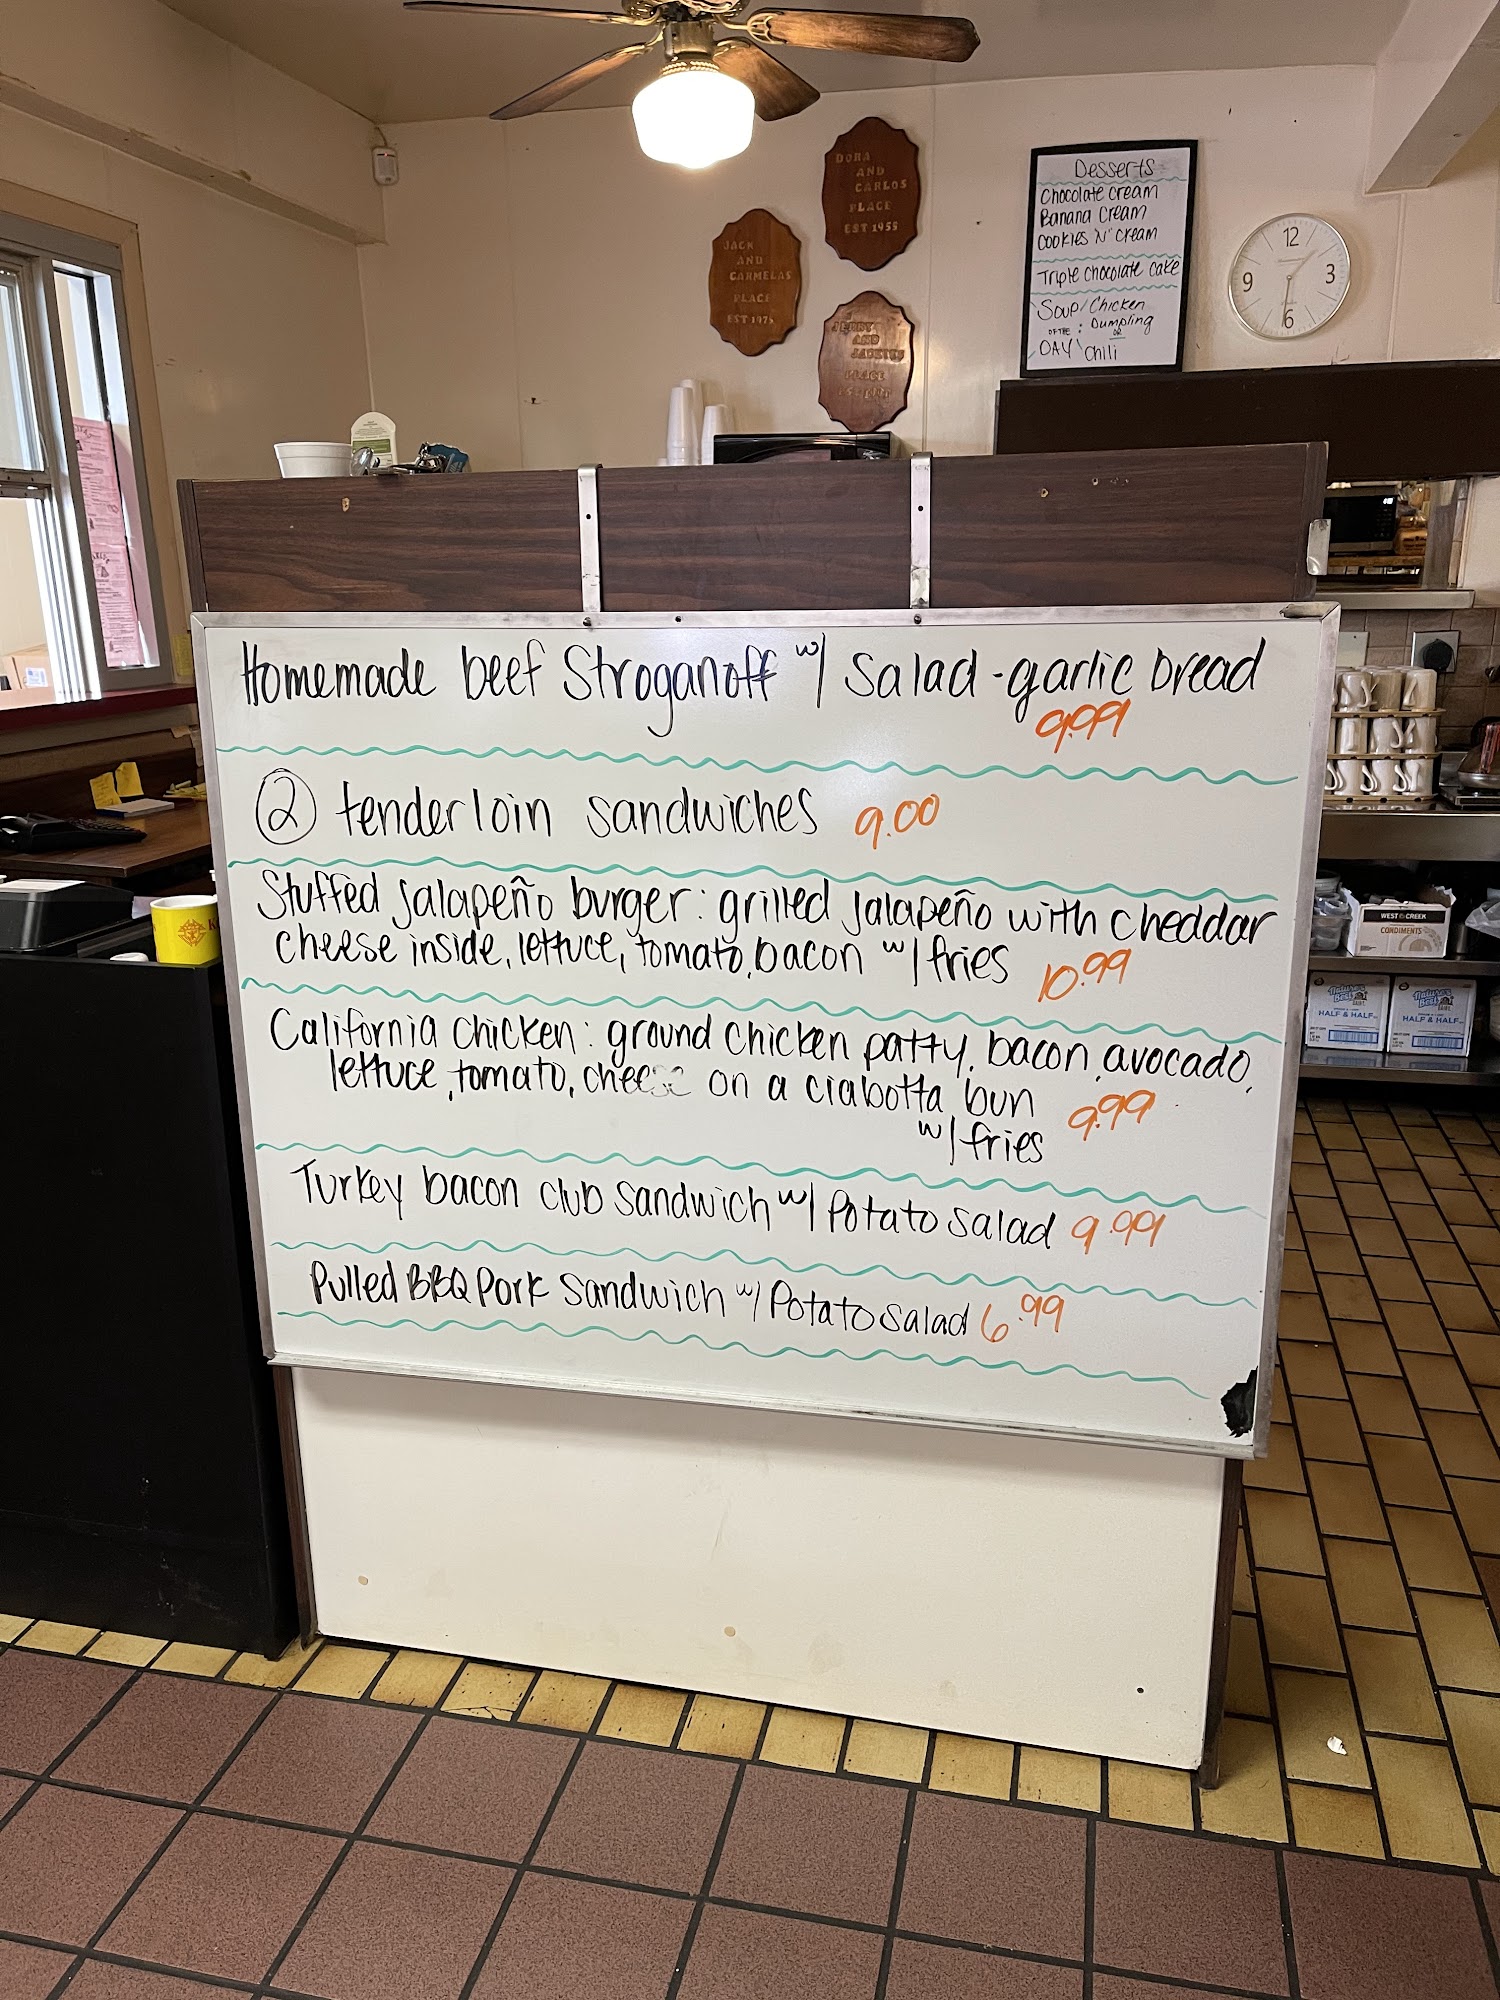 DORA
AND
CARLOS
PLACE
EST 1958
JACK
AND
CARMELAS
PLACE
EST 1975
JERRY
AND
PLACE
Desserts
Chocolate cream
Banana Cream
COOKIES 'N' Cream
Triple chocolate cake
Soup / Chicken
OF THE : Dumpling
OR
DAY chili
12
3
6
9
Homemade beef Stroganoff w/ Salad - garlic bread
9.99
2 tenderloin sandwiches 9.00
Stuffed jalapeño burger: grilled jalapeño with cheddar
cheese inside, lettuce, tomato, bacon w/ fries 10.99
California Chicken: ground chicken patty, bacon, avocado,
lettuce, tomato, cheese on a ciabotta bun 9.99
w/ fries
Turkey bacon club sandwich w/ Potato salad 9.99
Pulled BBQ Pork Sandwich w/ Potato salad 6.99
WEST CREEK
CONDIMENTS
Nature's Best
HALF & HALF
Nature's Best
HALF & HALF